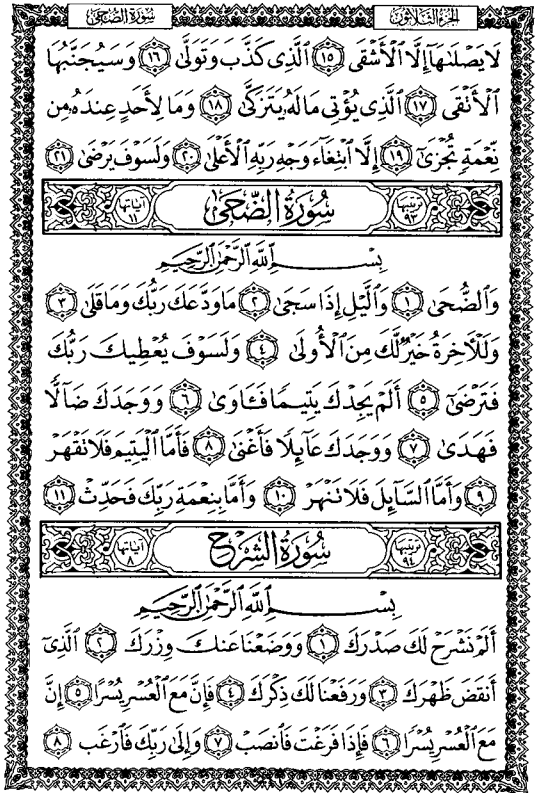 سُورَةُ الضُّحَىٰ الجُزءُ الثَّلَاثُونَ
لَا يَصْلَىٰهَآ إِلَّا ٱلْأَشْقَى ١٥ ٱلَّذِى كَذَّبَ وَتَوَلَّىٰ ١٦ وَسَيُجَنَّبُهَا
ٱلْأَتْقَى ١٧ ٱلَّذِى يُؤْتِى مَالَهُۥ يَتَزَكَّىٰ ١٨ وَمَا لِأَحَدٍ عِندَهُۥ مِن
نِّعْمَةٍ تُجْزَىٰٓ ١٩ إِلَّا ٱبْتِغَآءَ وَجْهِ رَبِّهِ ٱلْأَعْلَىٰ ٢٠ وَلَسَوْفَ يَرْضَىٰ ٢١
ترتيبها ٩٣ سُورَةُ الضُّحَىٰ آياتها ١١
بِسْمِ ٱللَّهِ ٱلرَّحْمَٰنِ ٱلرَّحِيمِ
وَٱلضُّحَىٰ ١ وَٱلَّيْلِ إِذَا سَجَىٰ ٢ مَا وَدَّعَكَ رَبُّكَ وَمَا قَلَىٰ ٣
وَلَلْأَخِرَةُ خَيْرٌ لَّكَ مِنَ ٱلْأُولَىٰ ٤ وَلَسَوْفَ يُعْطِيكَ رَبُّكَ
فَتَرْضَىٰٓ ٥ أَلَمْ يَجِدْكَ يَتِيمًا فَـَٔاوَىٰ ٦ وَوَجَدَكَ ضَآلًّا
فَهَدَىٰ ٧ وَوَجَدَكَ عَآئِلًا فَأَغْنَىٰ ٨ فَأَمَّا ٱلْيَتِيمَ فَلَا تَقْهَرْ
٩ وَأَمَّا ٱلسَّآئِلَ فَلَا تَنْهَرْ ١٠ وَأَمَّا بِنِعْمَةِ رَبِّكَ فَحَدِّثْ ١١
ترتيبها ٩٤ سُورَةُ الشَّرْحِ آياتها ٨
بِسْمِ ٱللَّهِ ٱلرَّحْمَٰنِ ٱلرَّحِيمِ
أَلَمْ نَشْرَحْ لَكَ صَدْرَكَ ١ وَوَضَعْنَا عَنكَ وِزْرَكَ ٢ ٱلَّذِىٓ
أَنقَضَ ظَهْرَكَ ٣ وَرَفَعْنَا لَكَ ذِكْرَكَ ٤ فَإِنَّ مَعَ ٱلْعُسْرِ يُسْرًا ٥ إِنَّ
مَعَ ٱلْعُسْرِ يُسْرًا ٦ فَإِذَا فَرَغْتَ فَٱنصَبْ ٧ وَإِلَىٰ رَبِّكَ فَٱرْغَب ٨